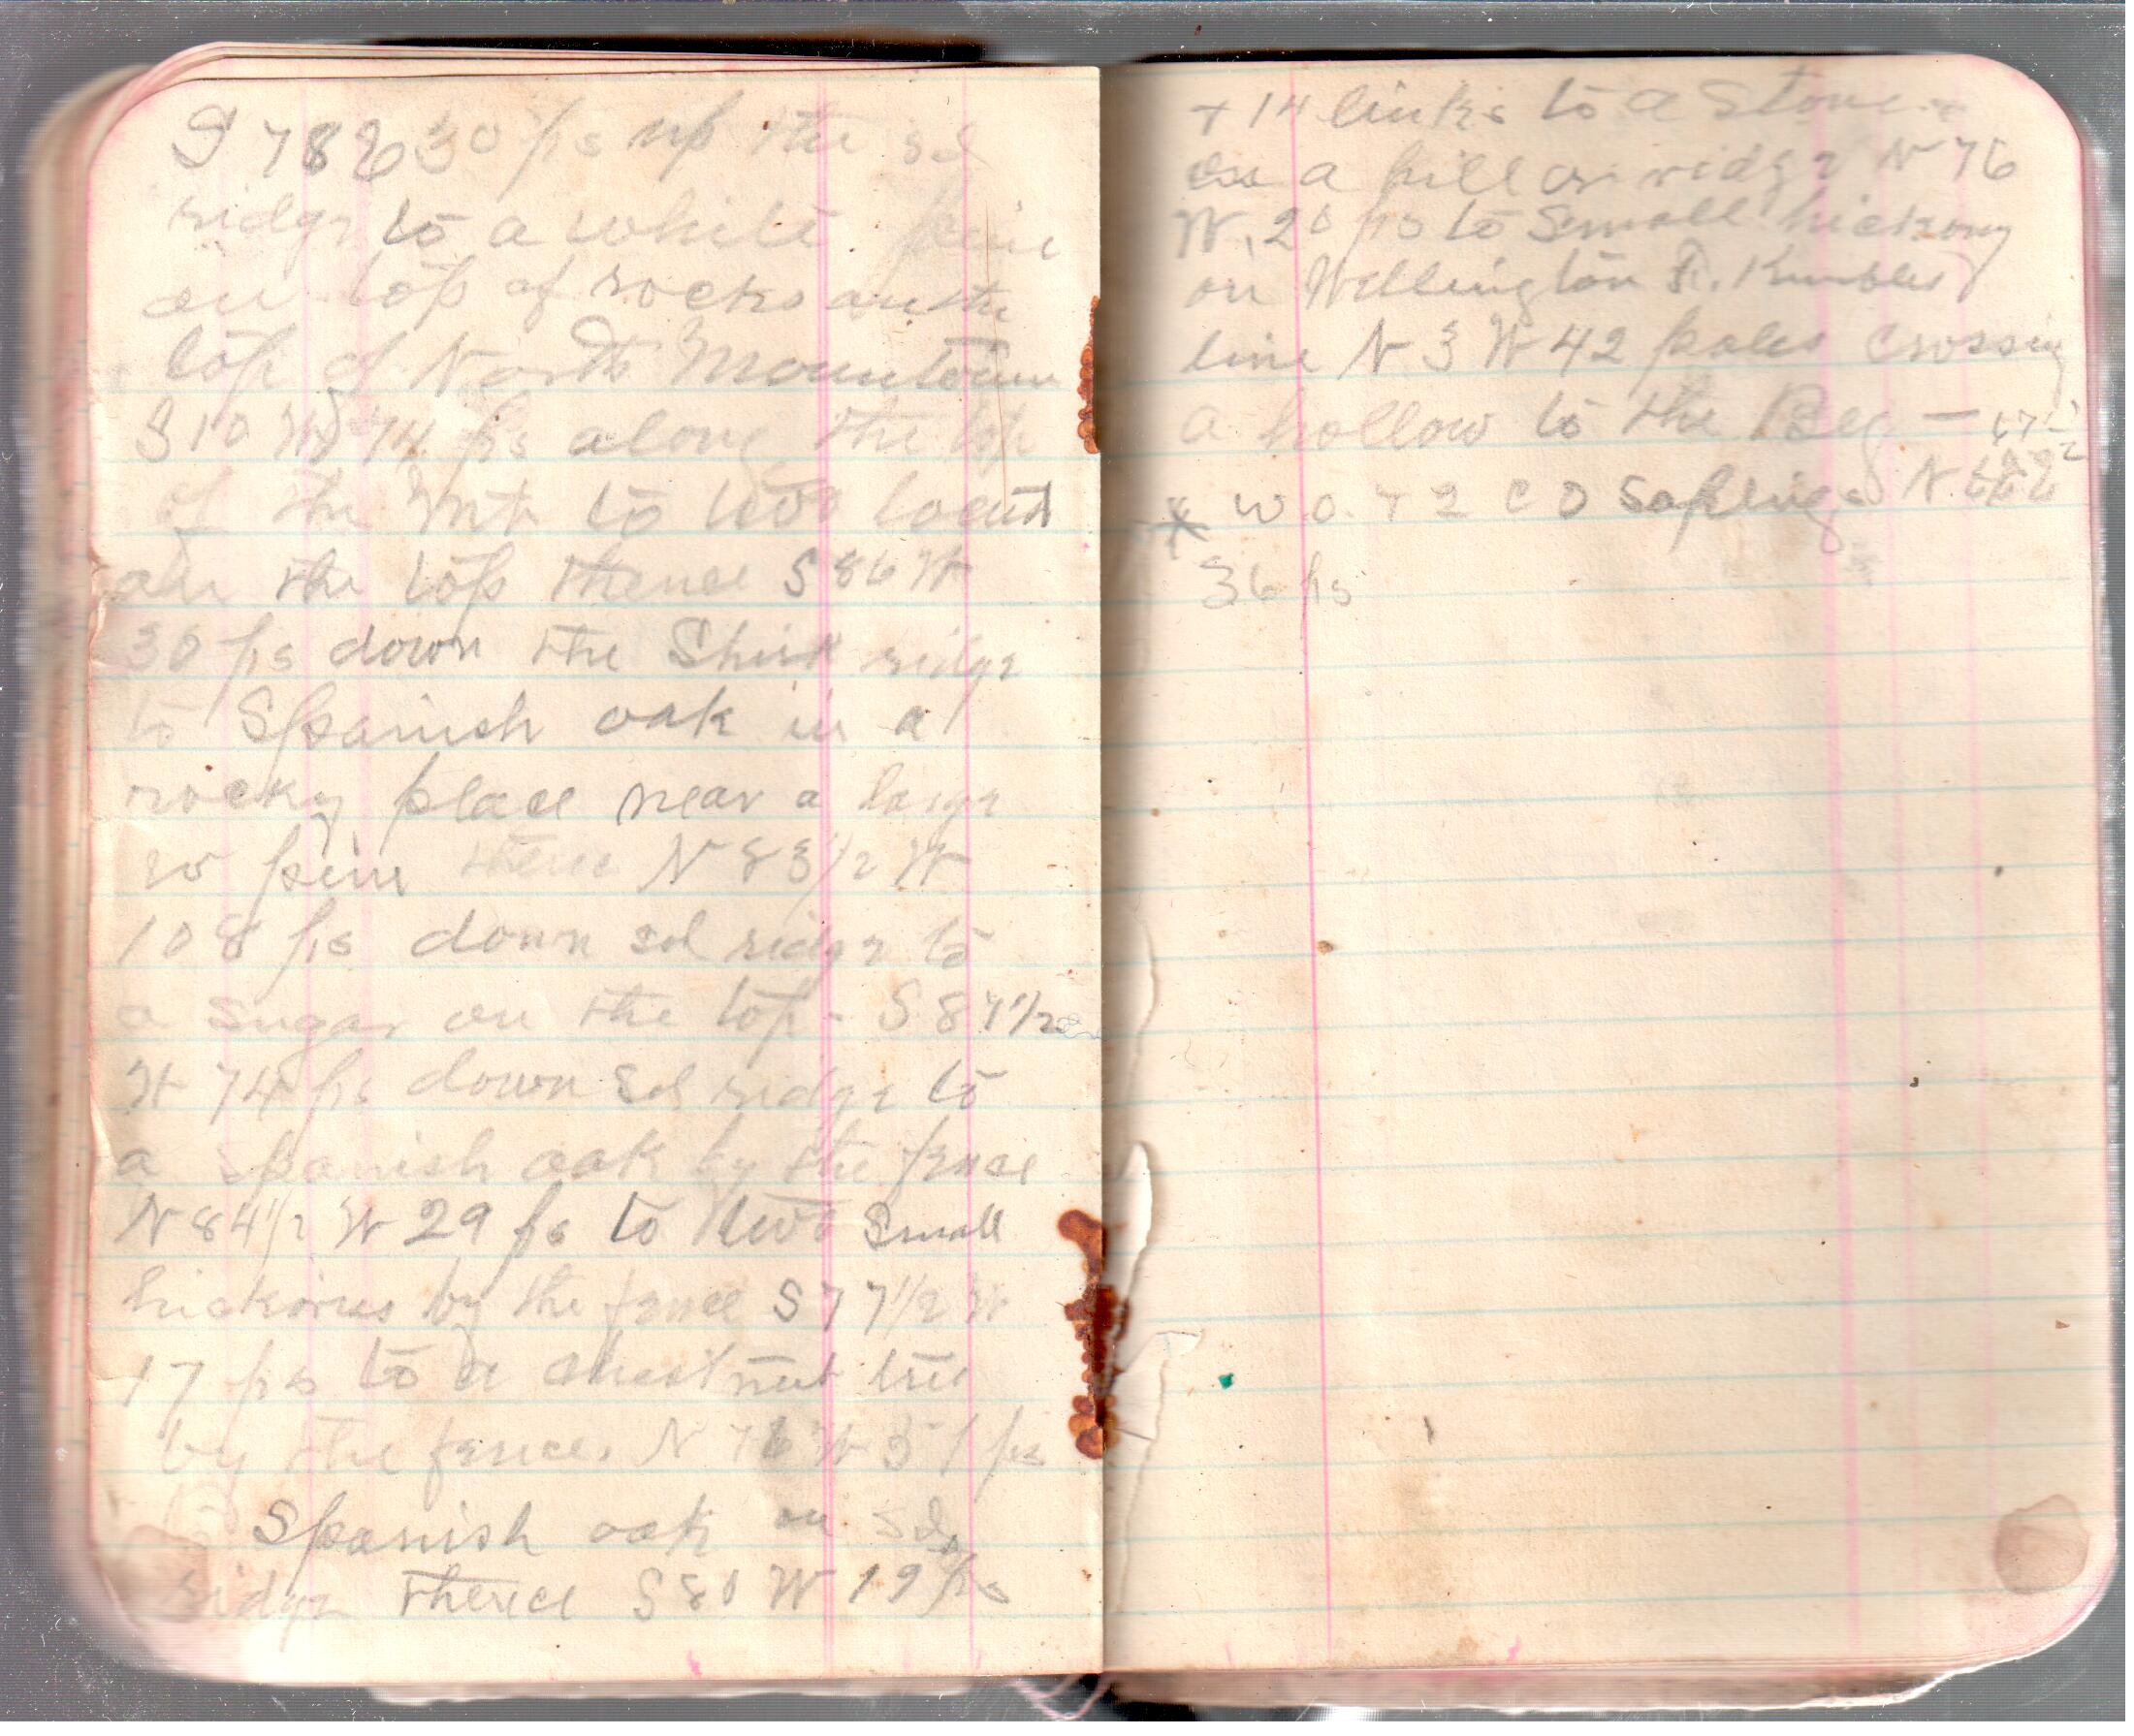 S 78 E 30 ps up the sd
ridge to a white pine
on top of rocks on the
top of North Mountain
S 10 W 74 ps along the top
of the Mt to two locust
on the top thence S 86 W
30 ps down the ridge
to Spanish oak in a
rocky place near a large
w pine thence N 83 1/2 W
108 ps down sd ridge to
a sugar on the top - S 87 1/2
W 74 ps down sd ridge to
a Spanish oak by the fence
N 84 1/2 W 29 ps to two small
hickories by the fence S 77 1/2 W
17 ps to a chestnut tree
by the fence. N 76 W 51 ps
Spanish oak on sd
ridge thence S 80 W 19 ps
+ 14 links to a Stone
a hill or ridge N 76
W. 20 ps to Small hickory
on Wellington Kimbles
line N 3 W 42 poles crossing
a hollow to the Beg —
* W. O. + 2 C O Saplings N
36 ps